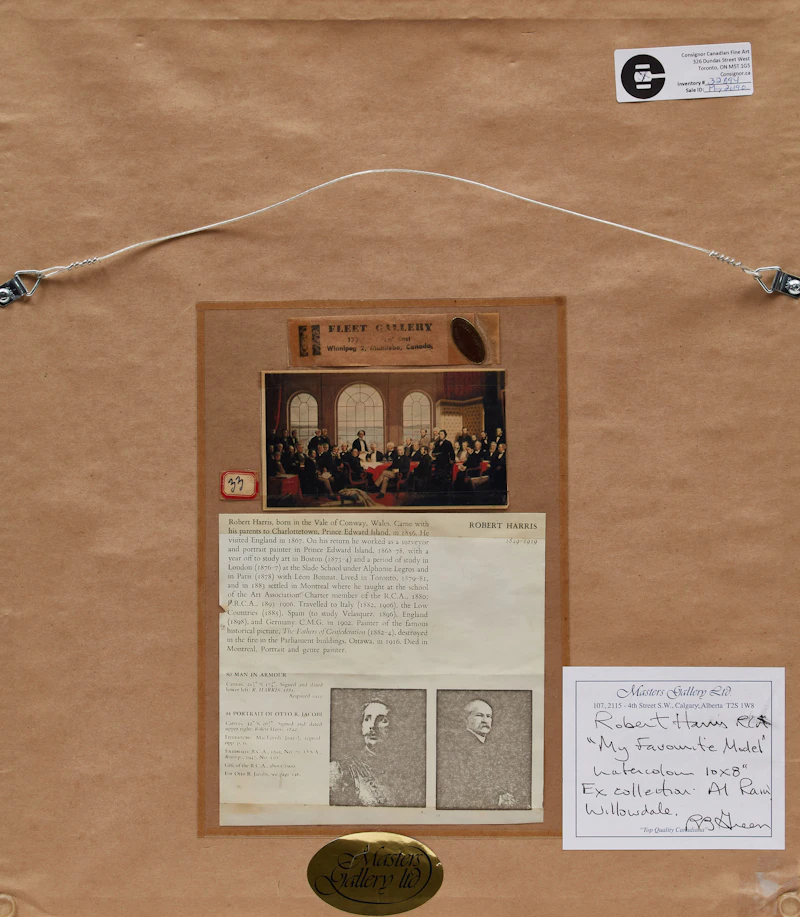 Consignor Canadian Fine Art
326 Dundas Street West
Toronto, ON M5T 1G5
Consignor.ca
Inventory#
Sale ID:
FLEET GALLERY
Winnipeg 2, Manitoba, Canada.
33
ROBERT HARRIS
1849-1919
Robert Harris, born in the Vale of Conway, Wales. Came with
his parents to Charlottetown, Prince Edward Island, in 1856. He
visited England in 1867. On his return he worked as a surveyor
and portrait painter in Prince Edward Island, 1868-78, with a
year off to study art in Boston (1873-4) and a period of study in
London (1876-7) at the Slade School under Alphonse Legros and
in Paris (1878) with Léon Bonnat. Lived in Toronto, 1879-81,
and in 1883 settled in Montreal where he taught at the school
of the Art Association. Charter member of the R.C.A., 1880;
P.R.C.A., 1893-1906. Travelled to Italy (1882, 1906), the Low
Countries (1885), Spain (to study Velasquez, 1896), England
(1898), and Germany. C.M.G. in 1902. Painter of the famous
historical picture, The Fathers of Confederation (1882-4), destroyed
in the fire in the Parliament buildings, Ottawa, in 1916. Died in
Montreal. Portrait and genre painter.
MAN IN ARMOUR
Signed and dated
lower left: R. HARRIS
PORTRAIT OF OTTO R. JACOBI
Signed and dated
upper right: Robert Harris
Gift of the R.C.A.
For Otto R. Jacobi, see page
Masters Gallery Ltd.
107, 2115 - 4th Street S.W., Calgary, Alberta T2S 1W8
Robert Harris RCA
"My Favourite Model"
Watercolour 10x8"
Ex collection. Al Rain
Willowdale.
"Top Quality Canadiana"
Masters
Gallery ltd